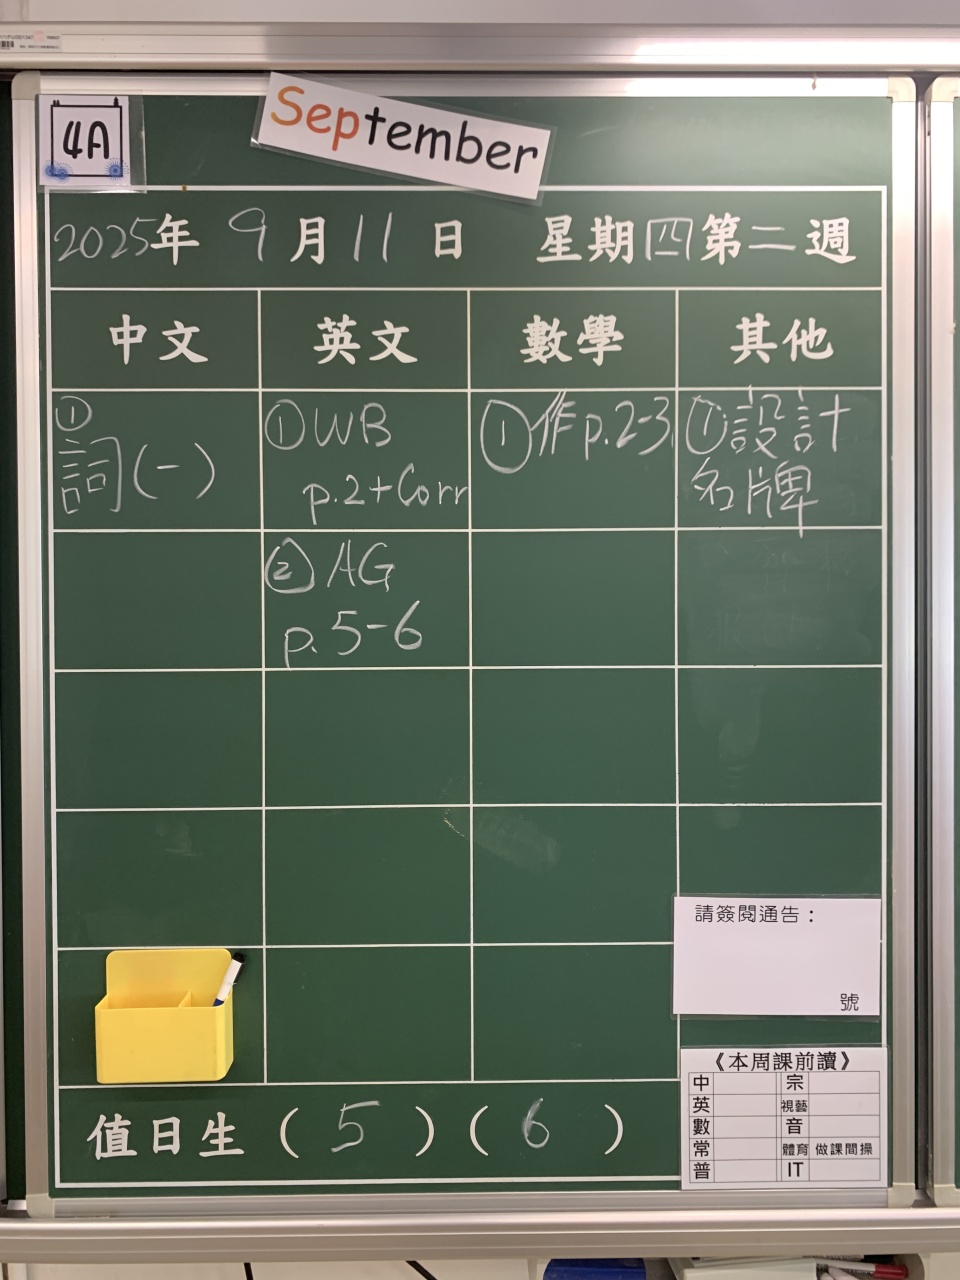 4A
September
2025年 9月11日 星期四第二週
中文 英文 數學 其他
①
詞(一)
①WB
p.2+Corr
①作p.2-3
①設計
名牌
②AG
p.5-6
請簽閱通告：
號
《本周課前讀》
中 宗
英 視藝
數 音
常 體育 做課間操
普 IT
值日生(5)(6)